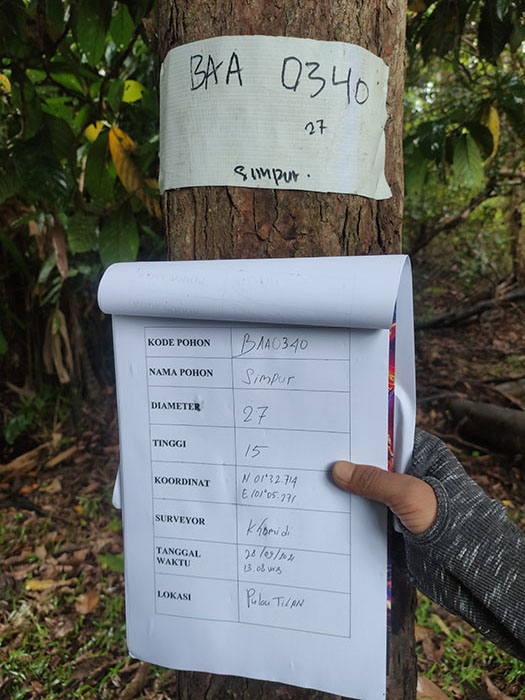 BAA 0340
27
Simpur.
KODE POHON BAA0340
NAMA POHON Simpur
DIAMETER 27
TINGGI 15
KOORDINAT N 01°32.714
E 101°05.271
SURVEYOR Khamidi
TANGGAL WAKTU 28/03/2021
13.08 WIB
LOKASI Pulau TILAN